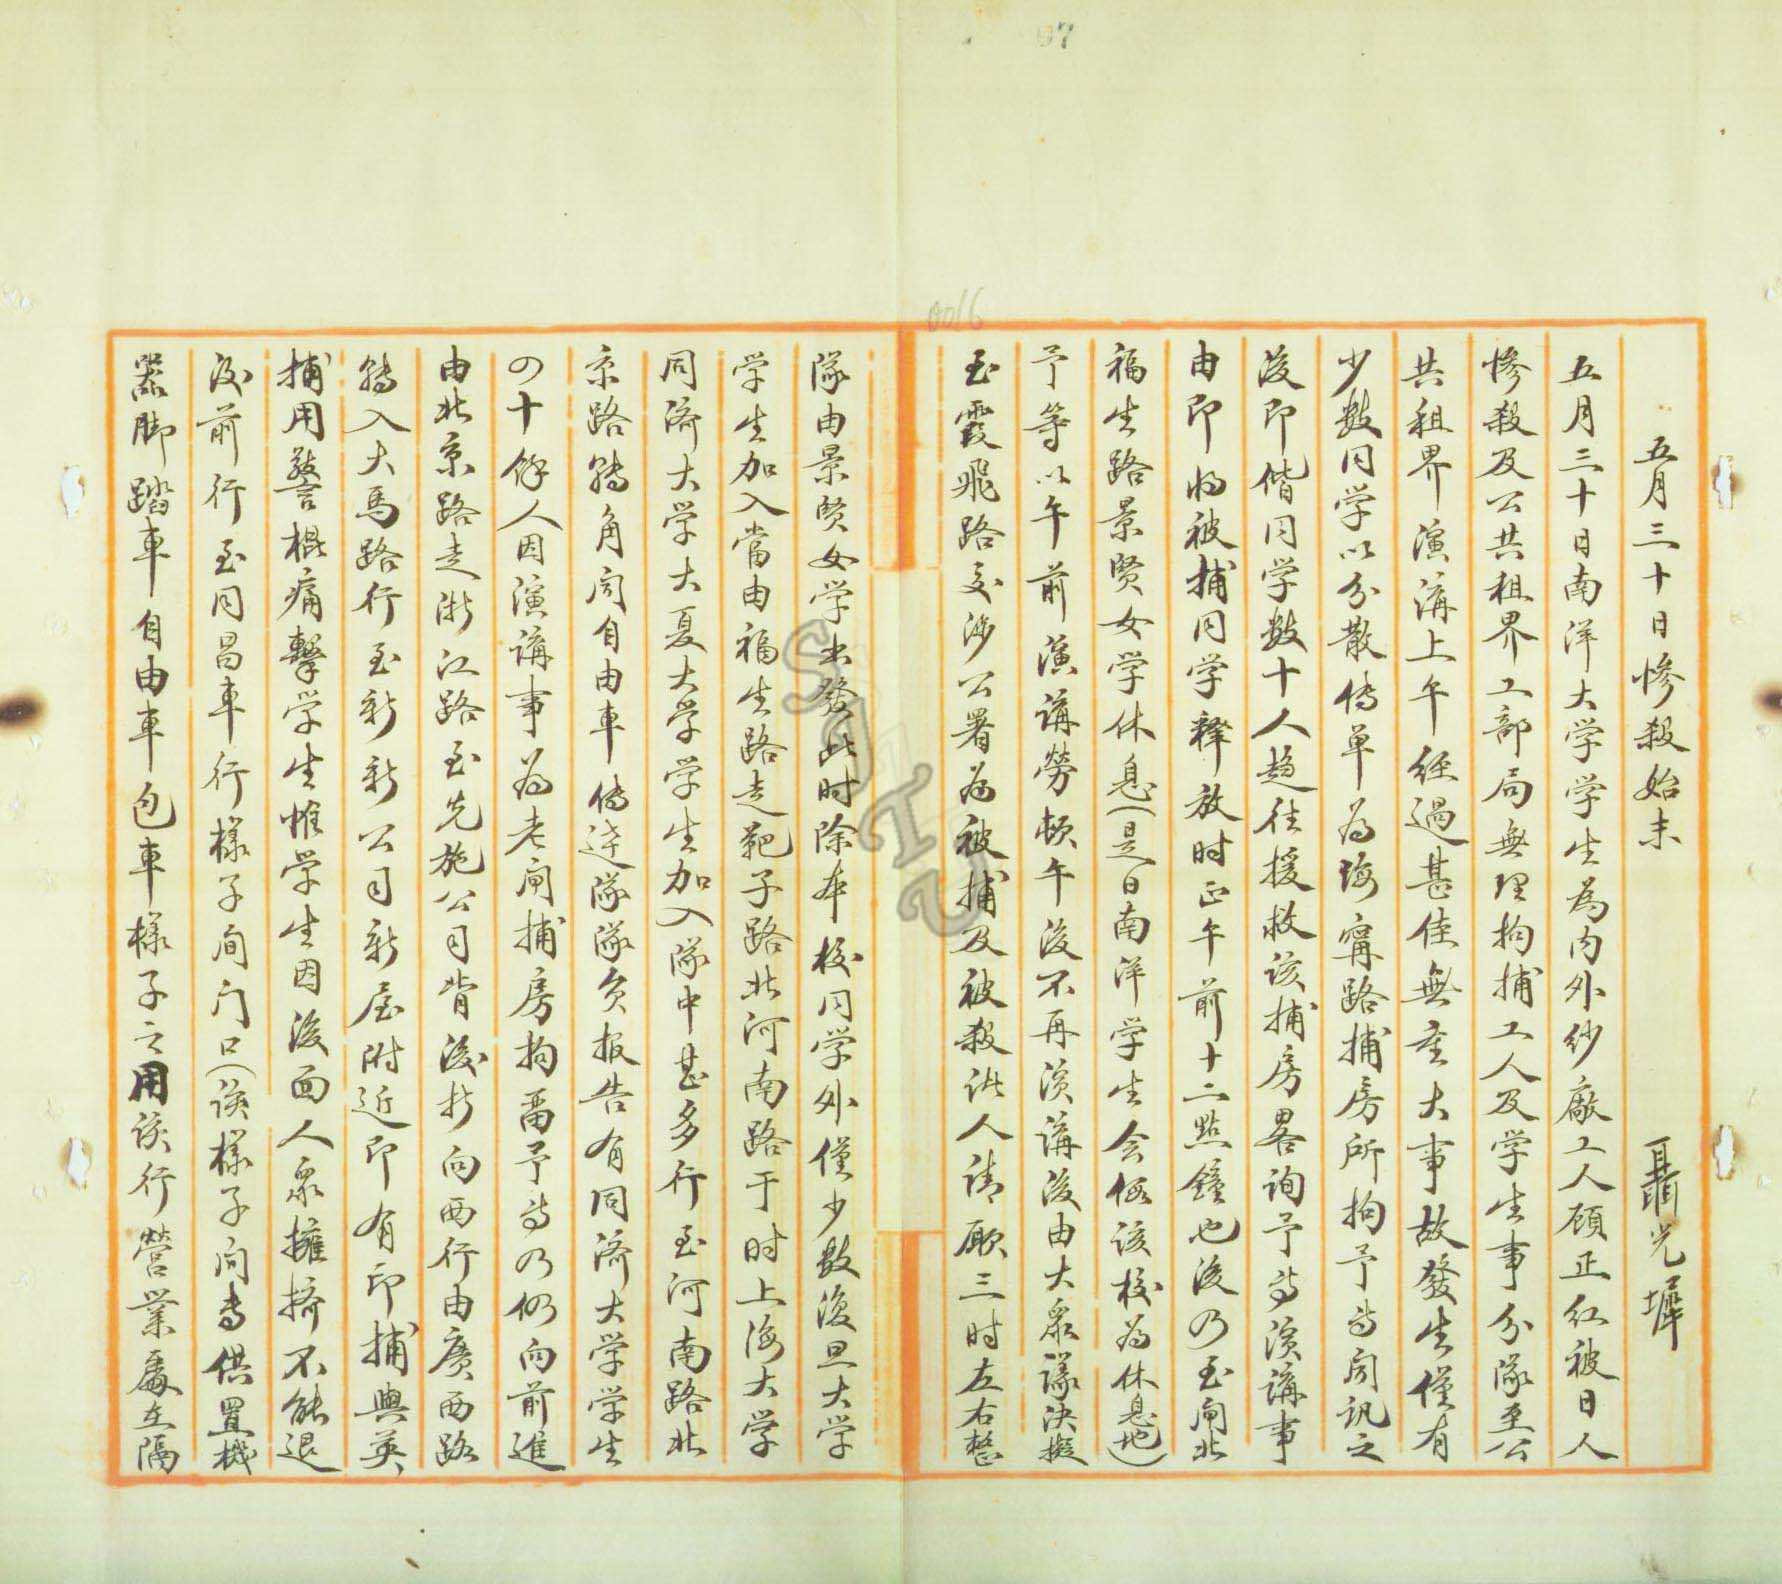 07
0016
五月三十日慘殺始末 聶光墀
五月三十日南洋大学学生為内外紗廠工人顾正红被日人
慘殺及公共租界工部局無理拘捕工人及学生事分隊至公
共租界演講上午经過甚佳無重大事故發生僅有
少數同学以分散传单為海寧路捕房所拘予等闻讯之
後即偕同学數十人趋往援救该捕房畧询予等演講事
由即将被捕同学釋放时正午前十二點鐘也後乃至闸北
福生路景賢女学休息(是日南洋学生会假该校為休息地)
予等以午前演講勞頓午後不再演講後由大衆議決擬
至霞飛路交涉公署為被捕及被殺诸人请願三时左右整
隊由景賢女学出發此时除本校同学外僅少數復旦大学
学生加入當由福生路走靶子路北河南路于时上海大学
同济大学大夏大学学生加入隊中甚多行至河南路北
京路转角闻自由車传达隊隊员报告有同济大学学生
四十餘人因演講事為老闸捕房拘留予等乃仍向前進
由北京路走浙江路至先施公司背後折向西行由廣西路
转入大馬路行至新新公司新屋附近即有印捕與英
捕用警棍痛擊学生惟学生因後面人衆擁擠不能退
後前行至同昌車行樣子间门口(该樣子间专供置機
器脚踏車自由車包車樣子之用该行營業處在隔
SJTU